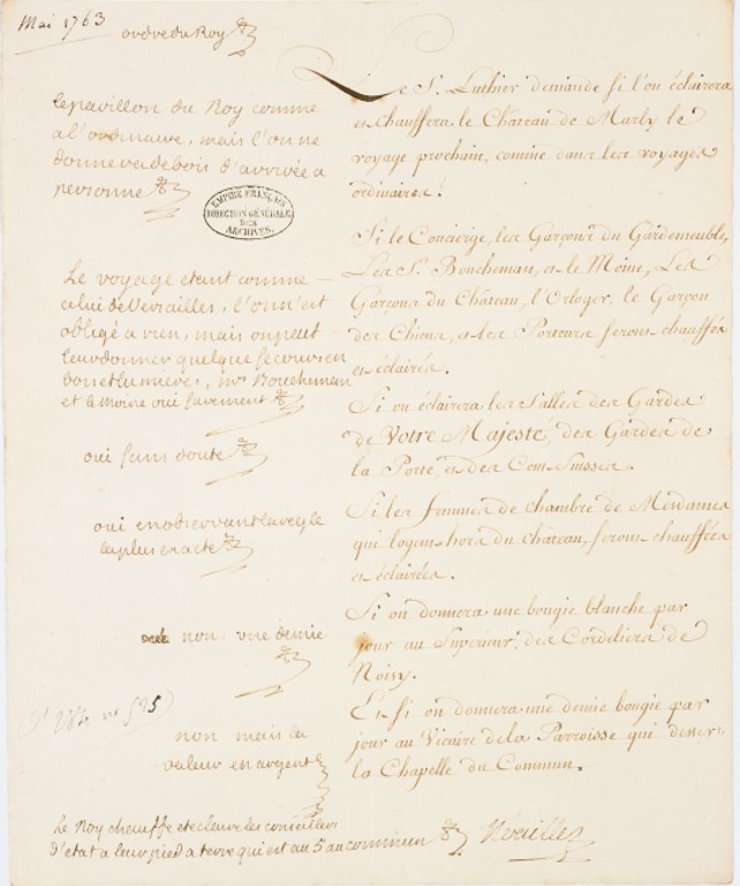 Mai 1763
ordre du Roy
Le Sr. Luthier demande si l'on éclairera
et chauffera le Château de Marly le
voyage prochain, comme dans les voyages
ordinaires.
le pavillon du Roy comme
a l'ordinaire, mais l'on ne
donnera de bois d'arrivée a
personne
EMPIRE FRANÇAIS
DIRECTION GÉNÉRALE
DES
ARCHIVES.
Si le Concierge, les Garçons du Gardemeuble,
Les Sr. Boucheman, et le Moine, Les
Garçons du Château, l'Orloger, le Garçon
des Chiens, et les Porteurs seront chauffés
et éclairés.
Le voyage etant comme
celui de Versailles, l'on n'est
obligé a rien, mais on peut
leur donner quelque secours en
bois et lumieres, mrs Boucheman
et le moine oui surement
Si on éclairera les Salles des Gardes
de Votre Majesté, des Gardes de
la Porte, et des Cent Suisses.
oui sans doute
Si les femmes de chambre de Mesdames
qui logent hors du château, seront chauffées
et éclairées.
oui en observant la regle
la plus exacte
Si on donnera une bougie blanche par
jour au Superieur des Cordeliers de
Noisy.
non, une demie
Et si on donnera une demie bougie par
jour au Vicaire de la Parroisse qui dessert
la Chapelle du Commun.
non mais la
valeur en argent
Le Roy chauffe et eclaire les conseillers
d'etat a leur pied a terre qui est au 5e au commun